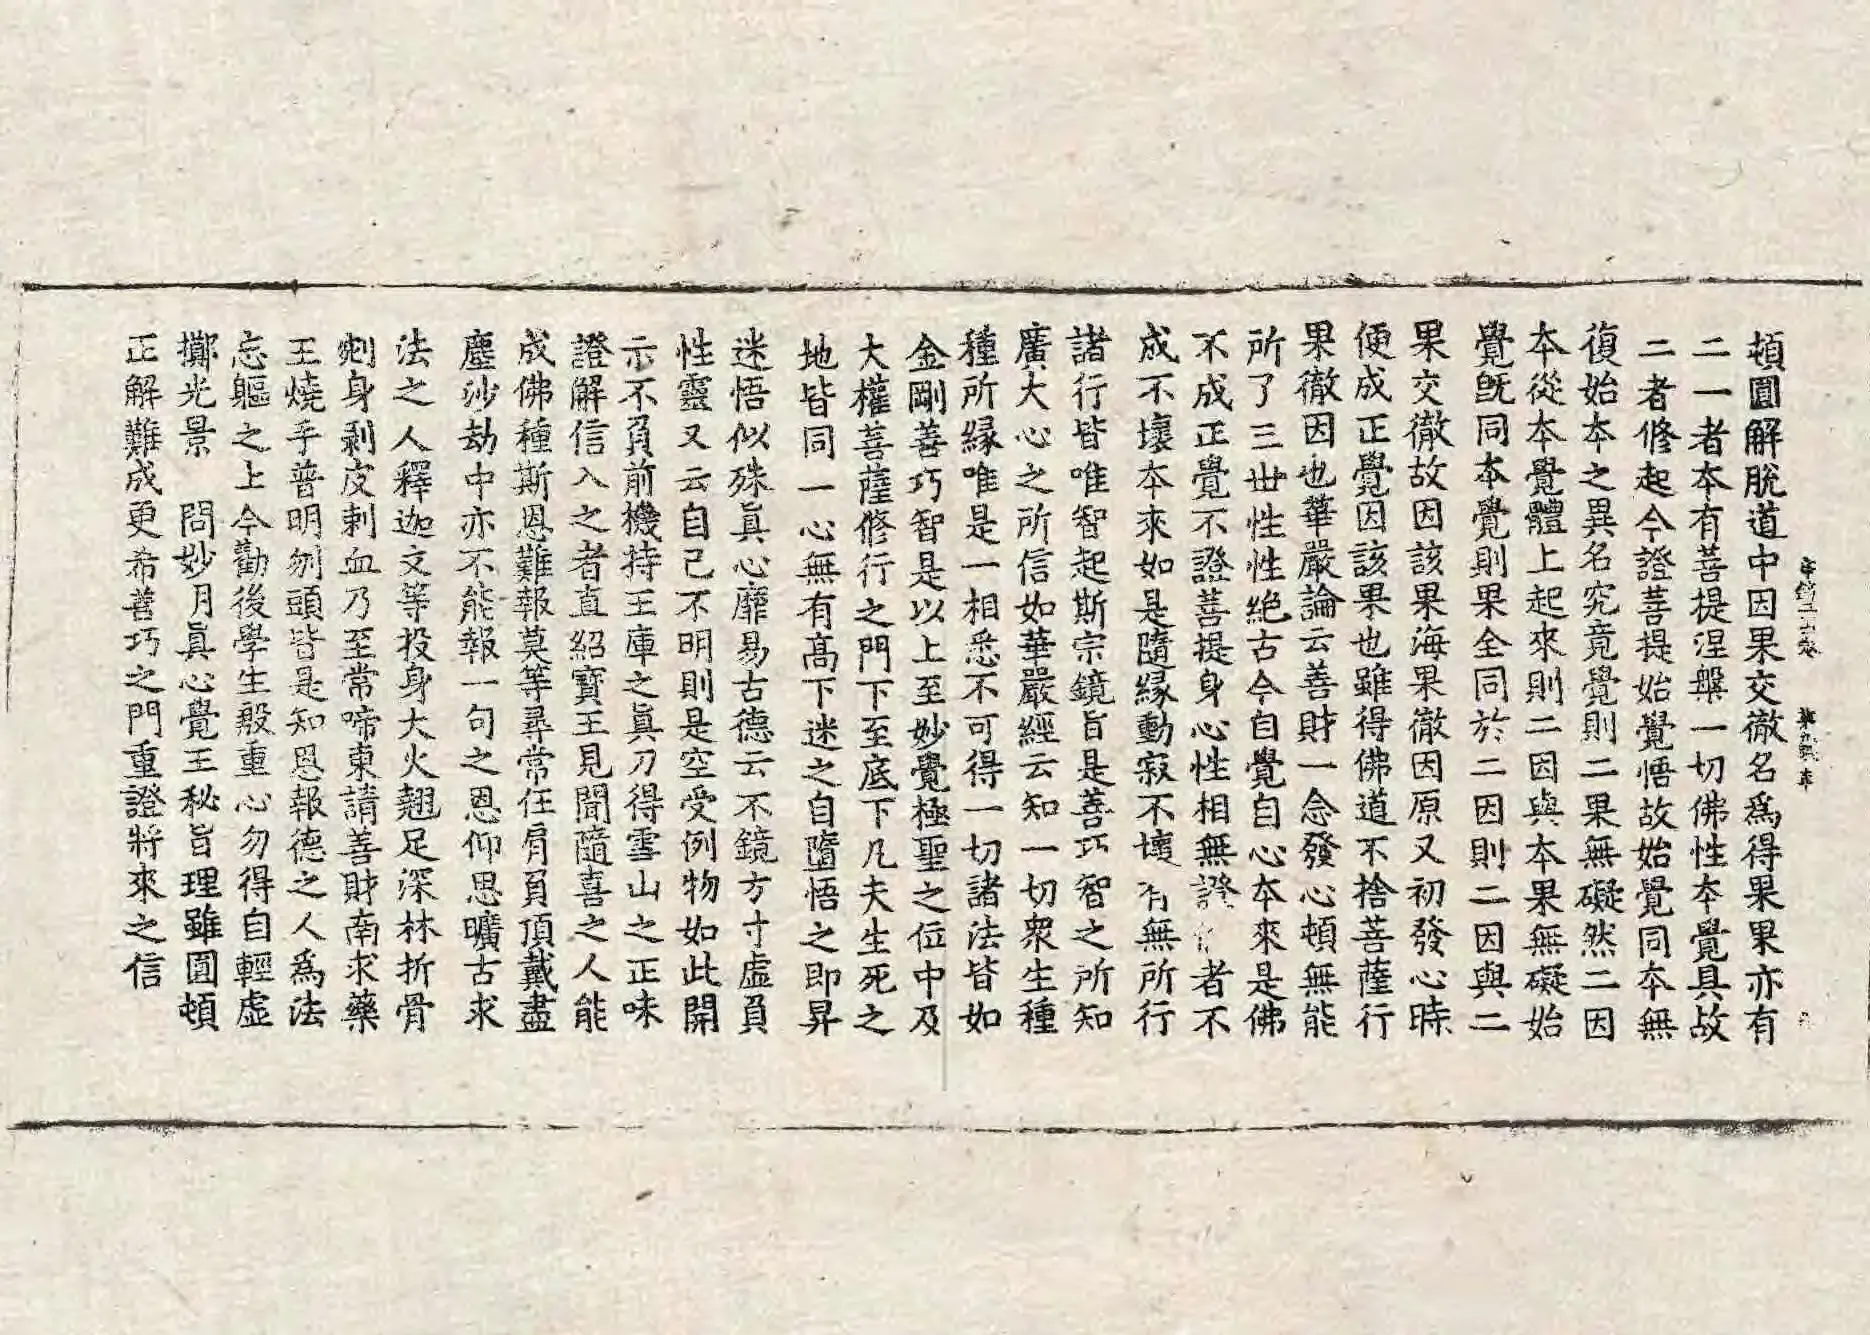 頓圓解脫道中因果交徹名爲得果果亦有
二一者本有菩提涅槃一切佛性本覺具故
二者修起今證菩提始覺悟故始覺同本無
復始本之異名究竟覺則二果無礙然二因
本從本覺體上起來則二因與本果無礙始
覺旣同本覺則果全同於二因則二因與二
果交徹故因該果海果徹因原又初發心時
便成正覺因該果也雖得佛道不捨菩薩行
果徹因也華嚴論云善財一念發心頓無能
所了三世性性絕古今自覺自心本來是佛
不成正覺不證菩提身心性相無證者不
成不壞本來如是隨緣動寂不壞有無所行
諸行皆唯智起斯宗鏡旨是善巧智之所知
廣大心之所信如華嚴經云知一切衆生種
種所緣唯是一相悉不可得一切諸法皆如
金剛善巧智是以上至妙覺極聖之位中及
大權菩薩修行之門下至底下凡夫生死之
地皆同一心無有高下迷之自墮悟之即昇
迷悟似殊眞心靡易古德云不鏡方寸虛負
性靈又云自己不明則是空受例物如此開
示不負前機持王庫之眞刀得雪山之正味
證解信入之者直紹寶王見聞隨喜之人能
成佛種斯恩難報莫等尋常任肩負頂戴盡
塵沙劫中亦不能報一句之恩仰思曠古求
法之人釋迦文等投身大火翹足深林折骨
剜身剥皮刺血乃至常啼東請善財南求藥
王燒手普明刎頭皆是知恩報德之人爲法
忘軀之上今勸後學生殷重心勿得自輕虛
擲光景　問妙月眞心覺王秘旨理雖圓頓
正解難成更希善巧之門重證將來之信